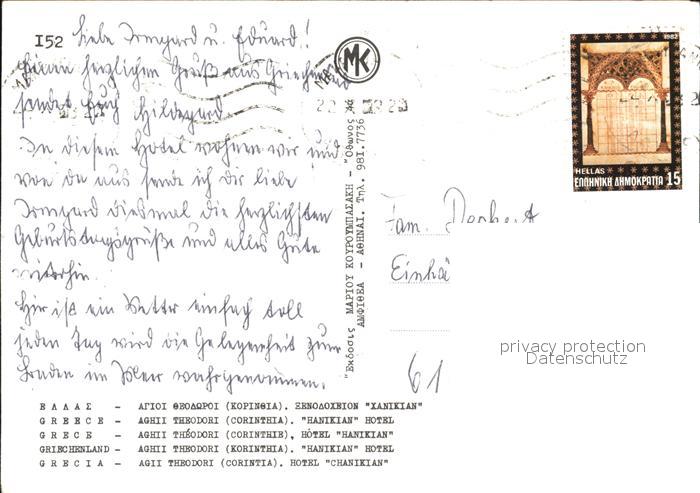 I52 Liebe Irmgard u. Eduard!
Einen herzlichen Gruß aus Griechenland
sendet Euch Hildegard
In diesem Hotel wohnen wir und
von da aus sende ich dir liebe
Irmgard diesmal die herzlichsten
Geburtstagsgrüße und alles Gute
weiterhin.
Hier ist ein Wetter einfach toll
jeden Tag wird die Gelegenheit zum
Baden im Meer wahrgenommen.
MK
1982
HELLAS
ΕΛΛΗΝΙΚΗ ΔΗΜΟΚΡΑΤΙΑ 15
Ἔκδοσις ΜΑΡΙΟΥ ΚΟΥΡΟΥΜΠΑΣΑΚΗ - Ὄθωνος
ΑΜΦΙΘΕΑ - ΑΘΗΝΑΙ. Τηλ. 981.7736
Fam.
61
privacy protection
Datenschutz
ΕΛΛΑΣ - ΑΓΙΟΙ ΘΕΟΔΩΡΟΙ (ΚΟΡΙΝΘΙΑ). ΞΕΝΟΔΟΧΕΙΟΝ "ΧΑΝΙΚΙΑΝ"
GREECE - AGHII THEODORI (CORINTHIA). "HANIKIAN" HOTEL
GRECE - AGHII THÉODORI (CORINTHIE), HÔTEL "HANIKIAN"
GRIECHENLAND - AGHII THEODORI (KORINTHIA). "HANIKIAN" HOTEL
GRECIA - AGII THEODORI (CORINTIA). HOTEL "CHANIKIAN"